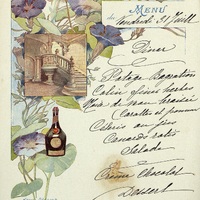 MENU
du Vendredi 31 Juill
Dîner
Potage Bagration
Colin fines herbes
Noix de veau braisée
Carottes et pommes
Céleris au jus
Canards rôtis
Salade
Crème Chocolat
Dessert